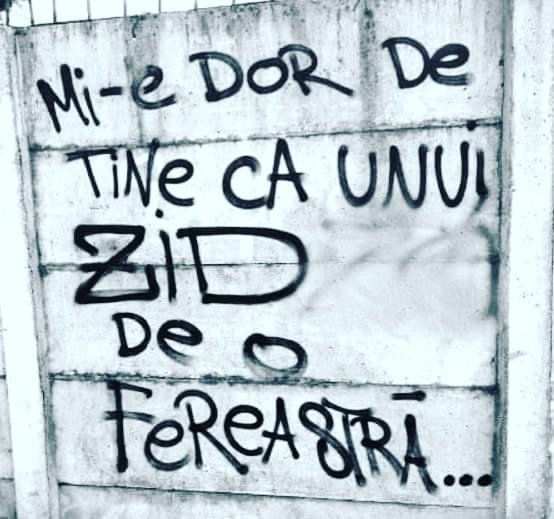 Mi-e DOR De
TiNe CA UNUi
ZiD
De O
FeReASTRĂ...